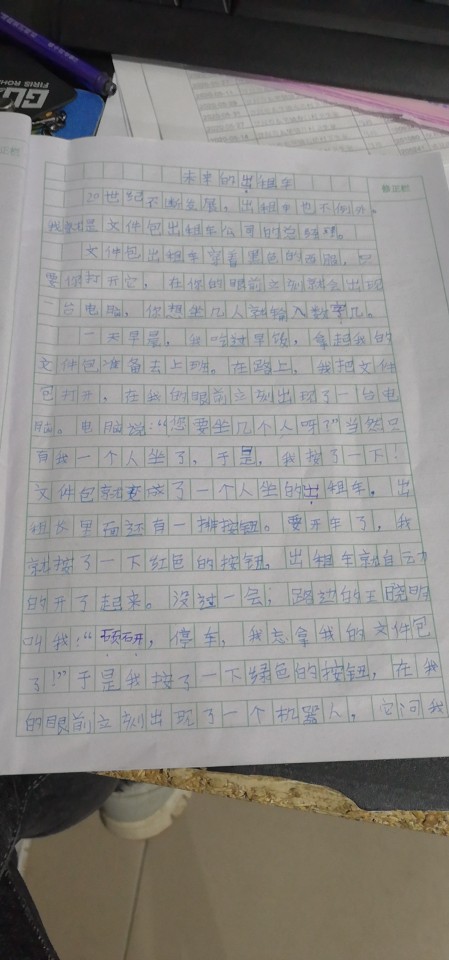 GU
FIRIS ROH
未来的出租车
20世纪不断发展,出租车也不例外。
我就是文件包出租车公司的总经理。
文件包出租车穿着黑色的西服,只
要你打开它,在你的眼前立刻就会出现
一台电脑,你想坐几人就输入数字几。
一天早晨,我吃过早饭,拿起我的
文件包准备去上班。在路上,我把文件
包打开,在我的眼前立刻出现了一台电
脑。电脑说:“您要坐几个人呀?”当然只
有我一个人坐了,于是,我按了一下1
文件包就变成了一个人坐的出租车。出
租车里面还有一排按钮。要开车了,我
就按了一下红色的按钮,出租车就自动
的开了起来。没过一会,路边的王晓明
叫我:“顾研,停车,我忘拿我的文件包
了!”于是我按了一下绿色的按钮,在我
的眼前立刻出现了一个机器人,它问我